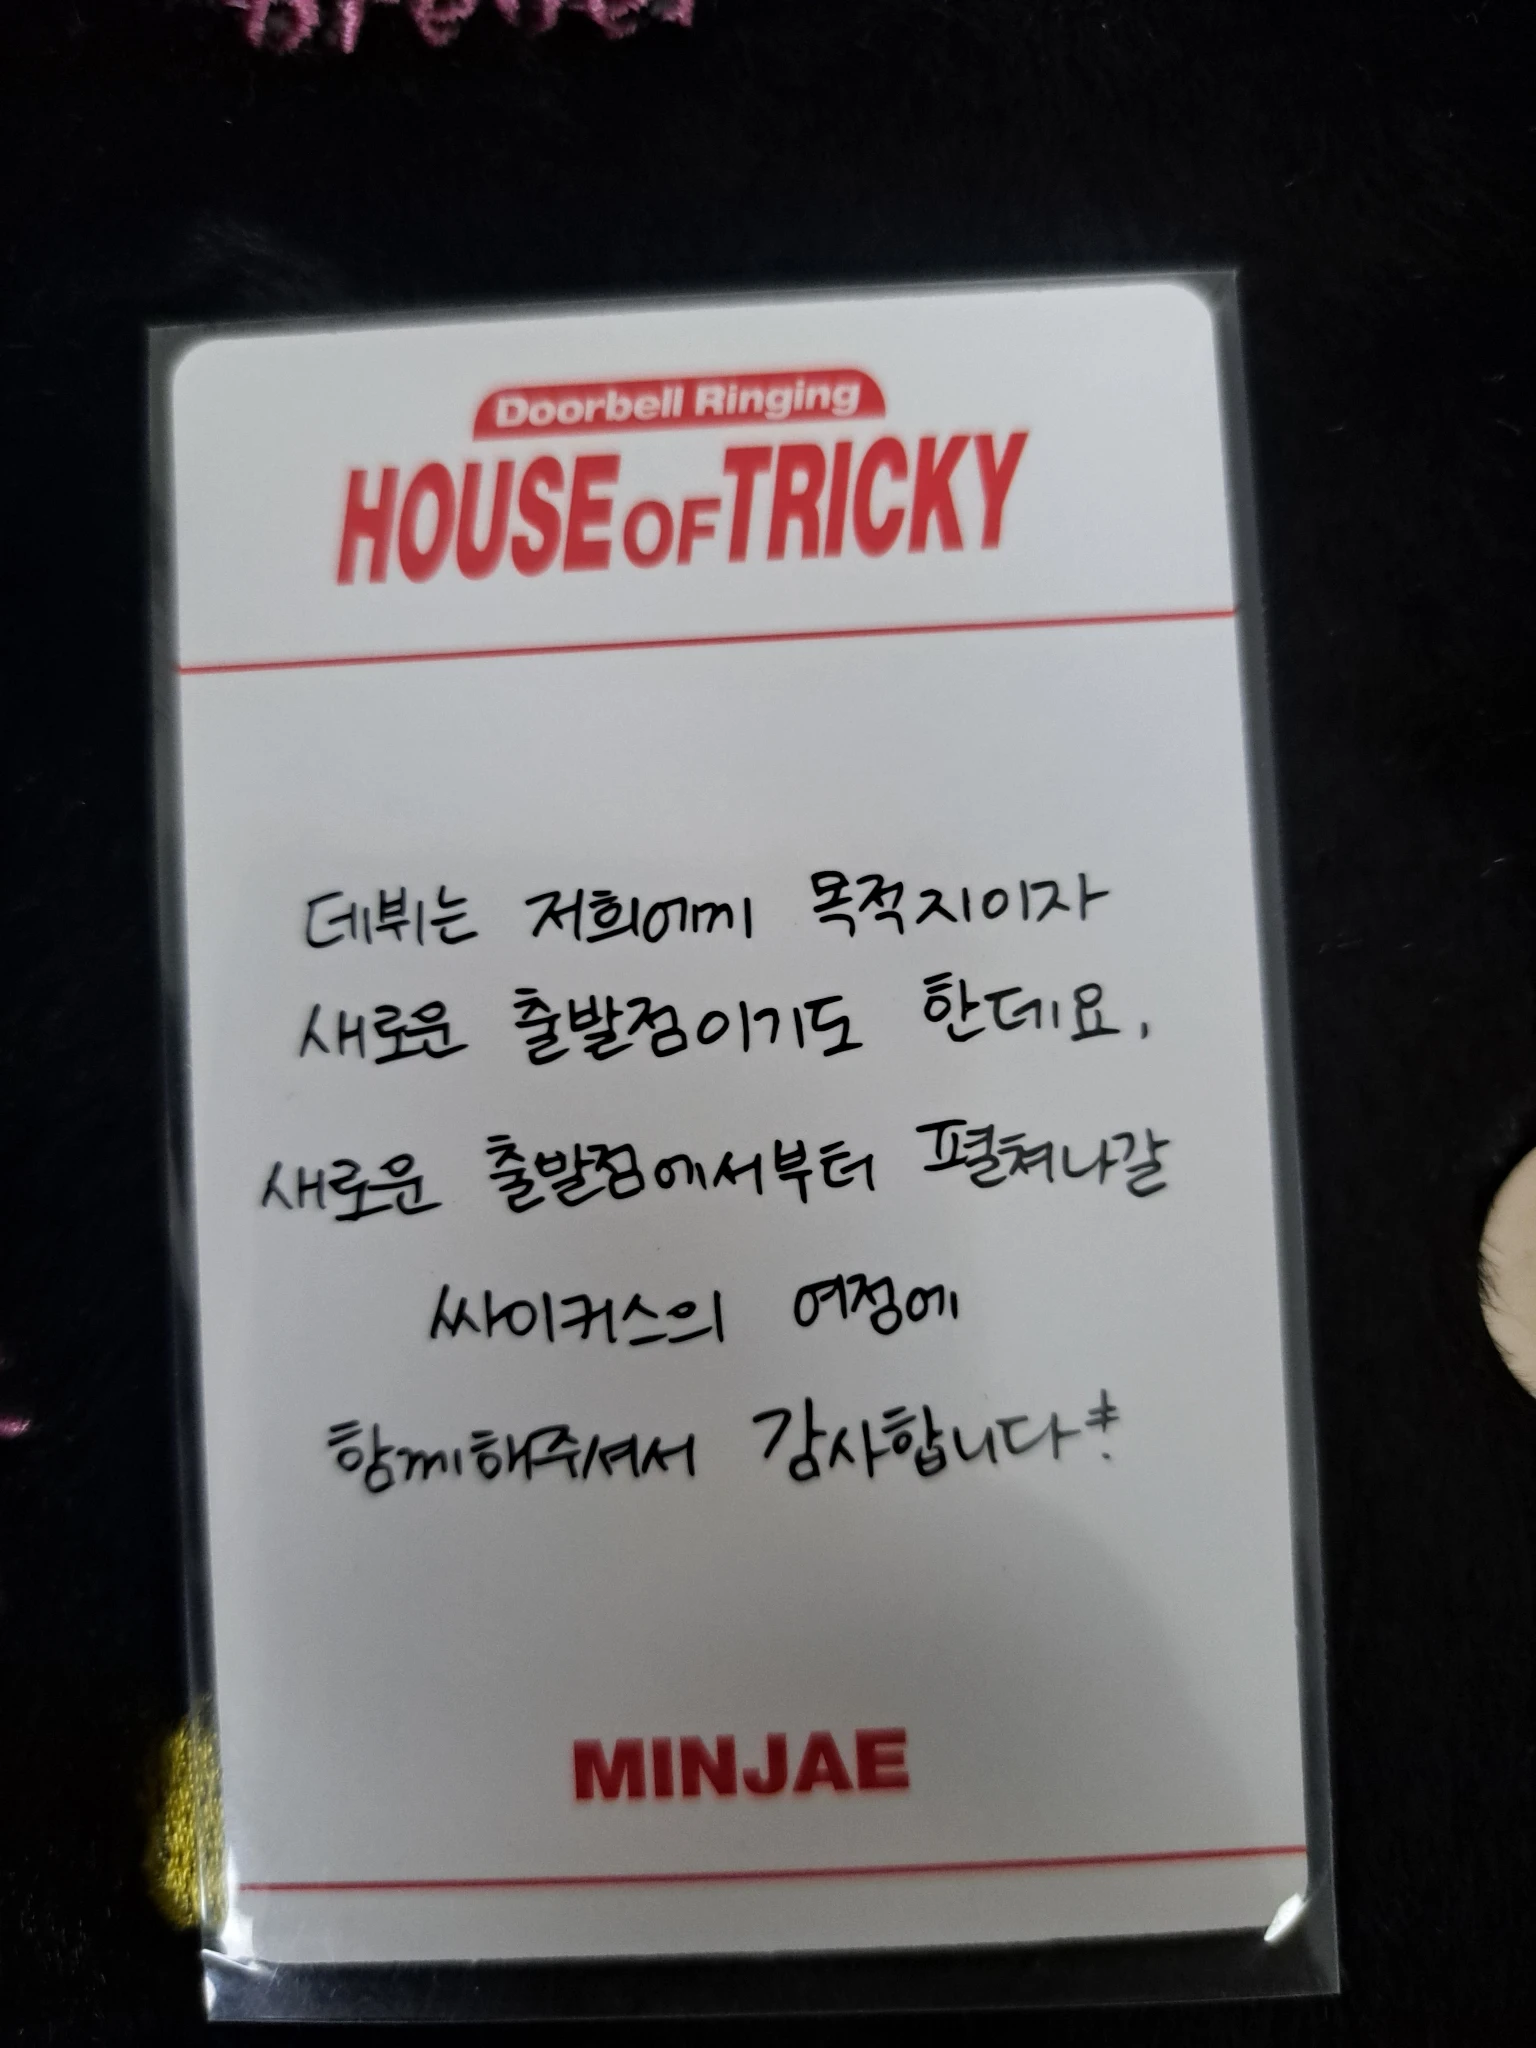 Doorbell Ringing
HOUSE OF TRICKY
데뷔는 저희에께 목적지이자
새로운 출발점이기도 한데요,
새로운 출발점에서부터 펼쳐나갈
싸이커스의 여정에
함께해주셔서 감사합니다!
MINJAE